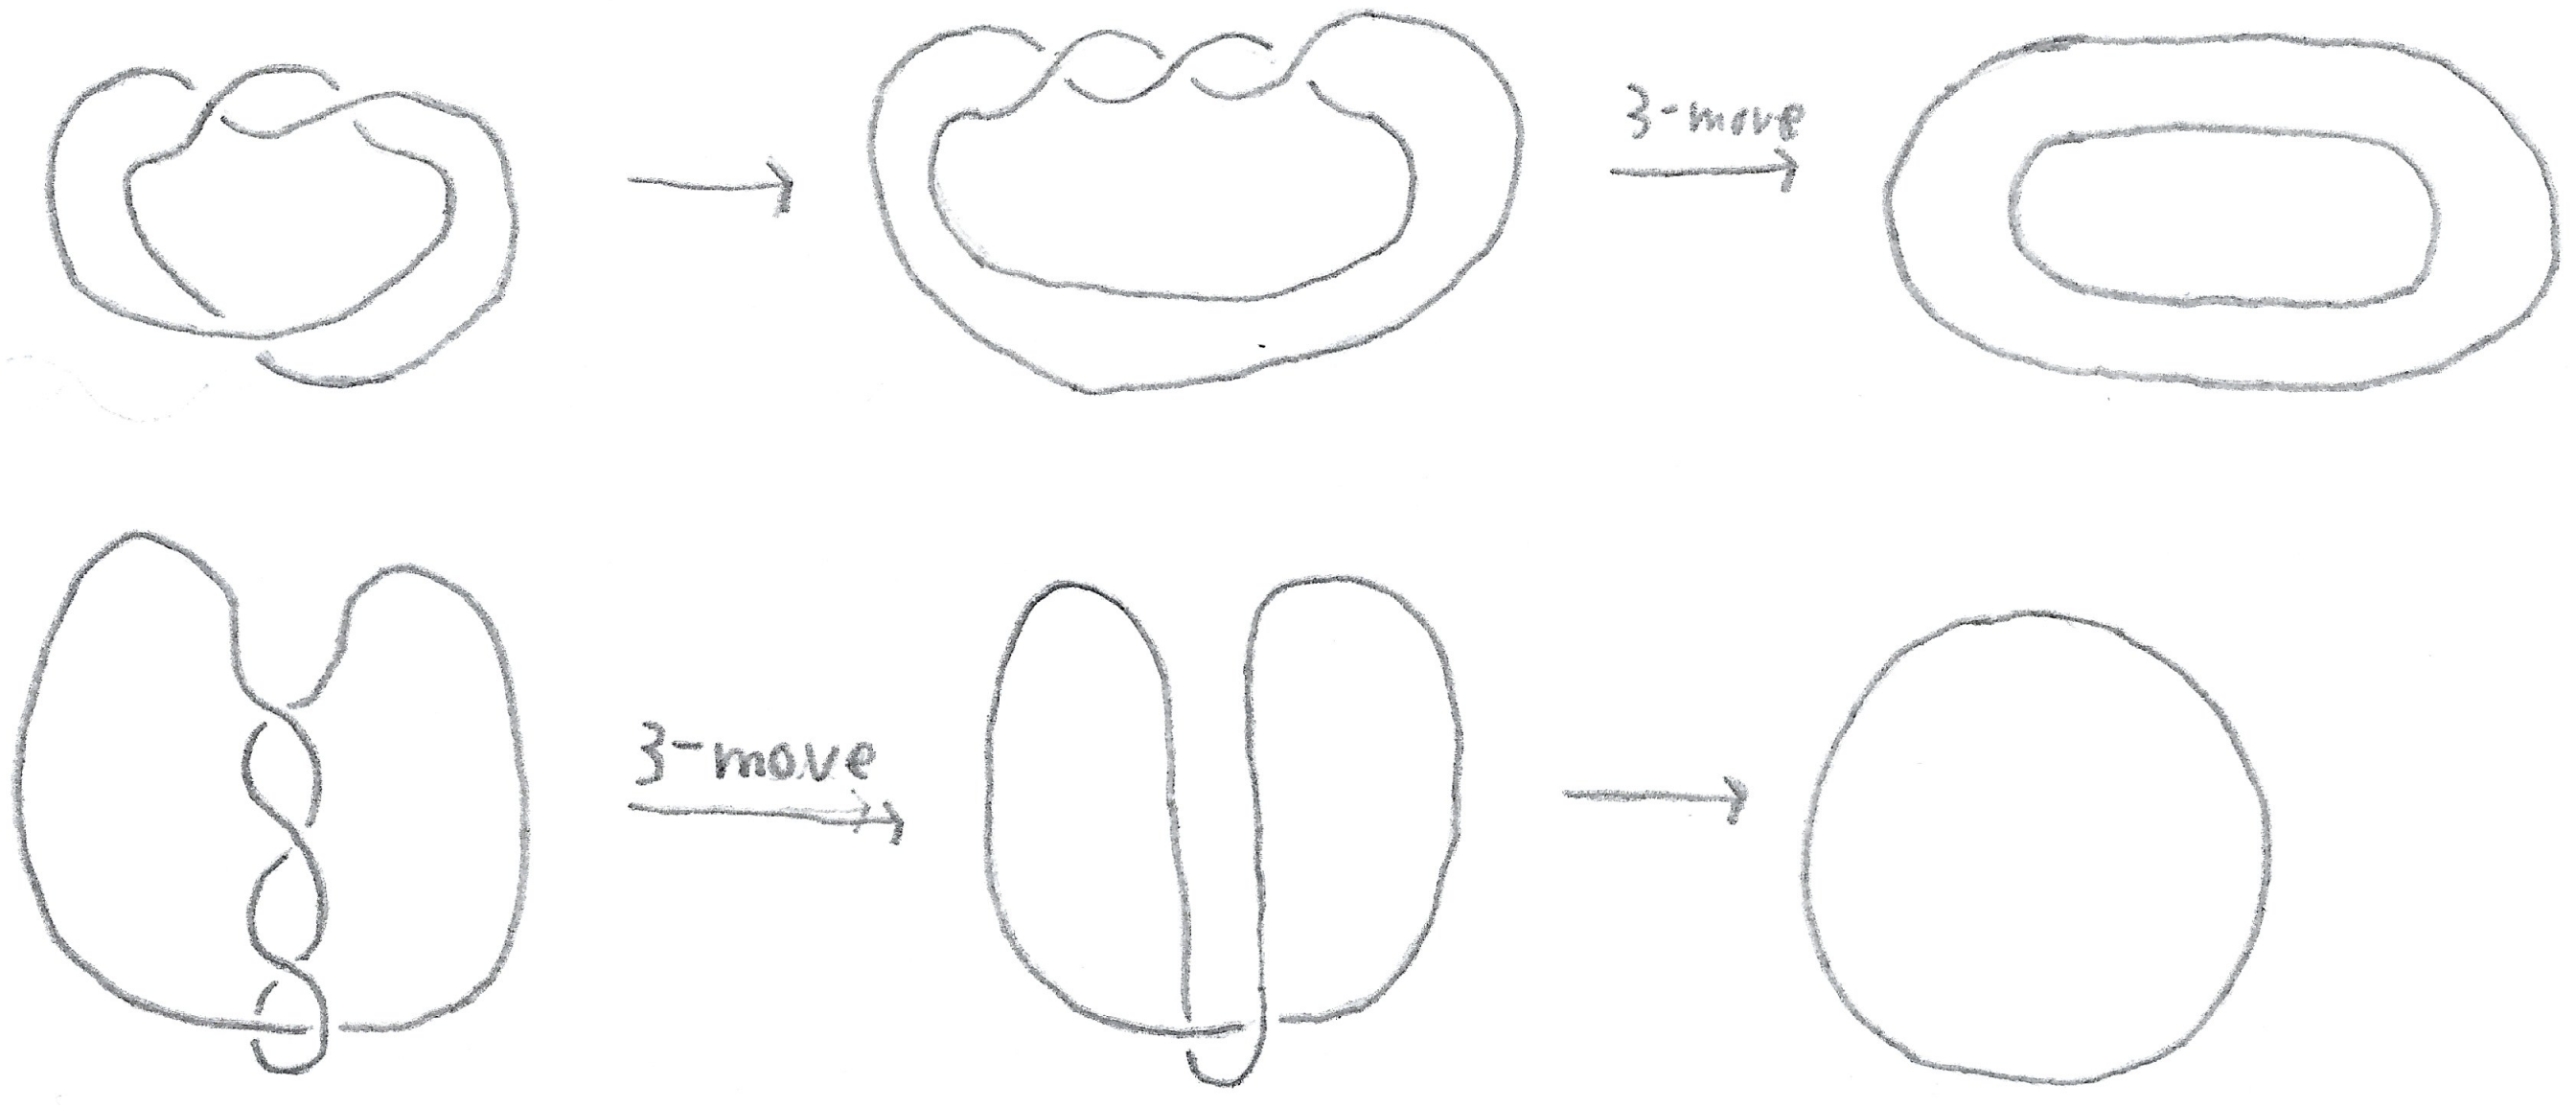 3-move
3-move